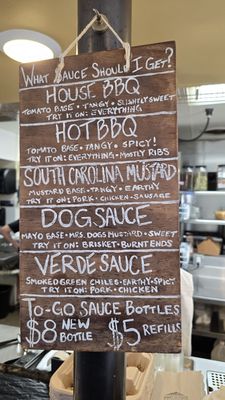 What Sauce Should I Get?
HOUSE BBQ
TOMATO BASE • TANGY • SLIGHTLY SWEET
TRY IT ON: EVERYTHING
HOT BBQ
TOMATO BASE • TANGY • SPICY!
TRY IT ON: EVERYTHING • MOSTLY RIBS
SOUTH CAROLINA MUSTARD
MUSTARD BASE • TANGY • EARTHY
TRY IT ON: PORK • CHICKEN • SAUSAGE
DOG SAUCE
MAYO BASE • MRS. DOGS MUSTARD • SWEET
TRY IT ON: BRISKET • BURNT ENDS
VERDE SAUCE
SMOKED GREEN CHILES • EARTHY • SPICY
TRY IT ON: PORK • CHICKEN
TO-GO SAUCE BOTTLES
$8 NEW BOTTLE $5 REFILLS